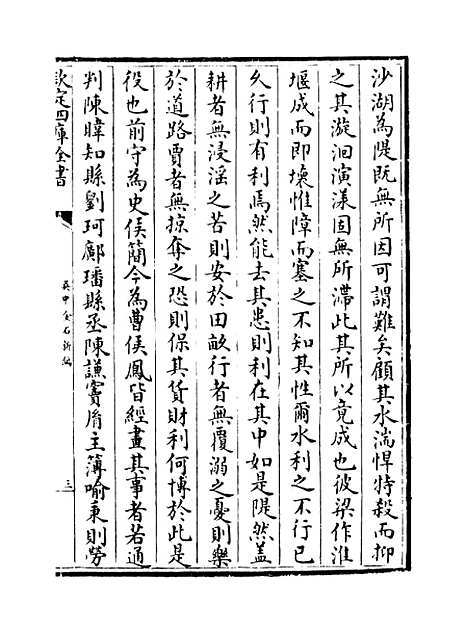 沙湖為隄既無所因可謂難矣顧其水湍悍特殺而抑
之其漩洄演漾固無所滯此其所以竟成也彼梁作淮
堰成而即壞惟障而塞之不知其性爾水利之不行已
久行則有利焉然能去其患則利在其中如是隄然蓋
耕者無浸淫之苦則安於田畝行者無覆溺之憂則樂
於道路賈者無掠奪之恐則保其貨財利何博於此是
役也前守為史侯簡今為曹侯鳳皆經畫其事者若通
判陳暐知縣劉珂鄺璠縣丞陳謙竇庠主簿喻秉則勞
欽定四庫全書
吳中金石新編
三